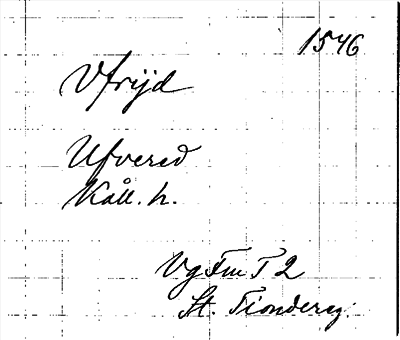 1546
Vfrijd
Ufvered
Kåll. h.
Vg Fm T 2
St. Tiondereg.